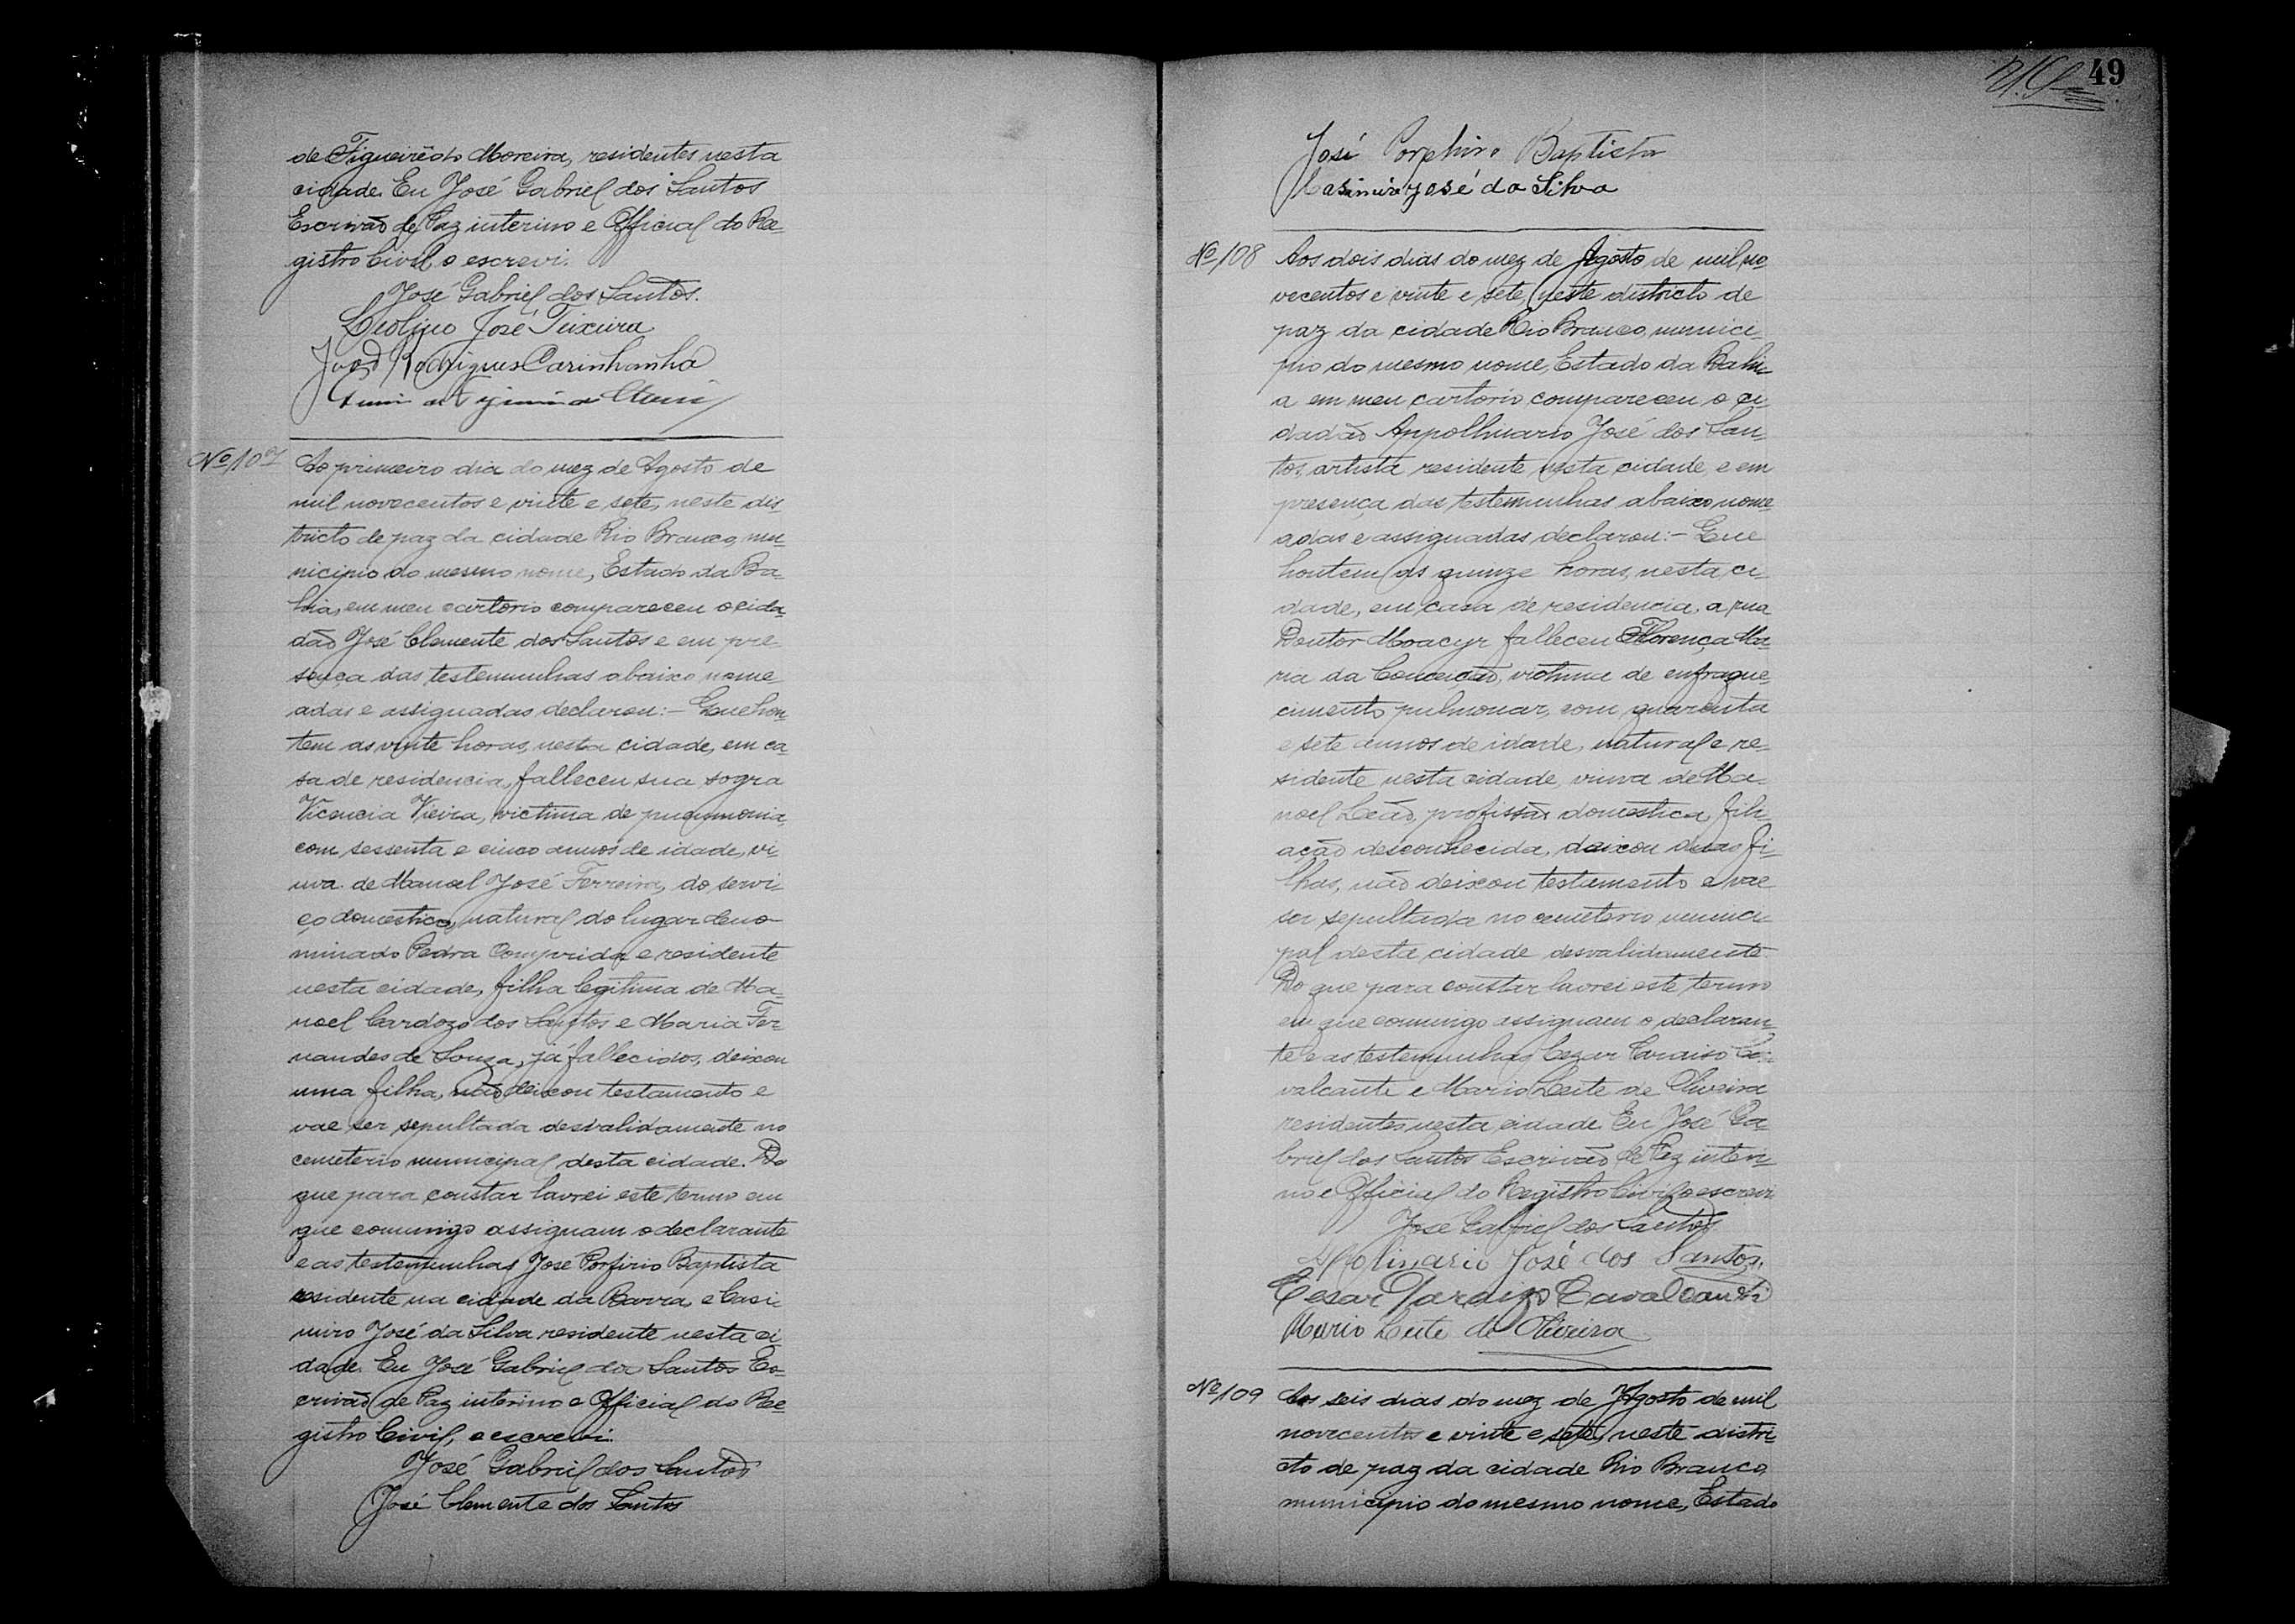 de Figueirêdo Moreira, residentes nesta
cidade. Eu José Gabriel dos Santos
Escrivão de Paz interino e Official do Re-
gistro Civil o escrevi.
José Gabriel dos Santos.
José Teixeira
João Rodrigues Carinhanha
Nº 107
Ao primeiro dia do mez de Agosto de
mil novecentos e vinte e sete, neste dis-
tricto de paz da cidade Rio Branco, mu-
nicipio do mesmo nome, Estado da Ba-
hia, em meu cartorio compareceu o cida-
dão José Clemente dos Santos e em pre-
sença das testemunhas abaixo nome-
adas e assignadas declarou:- Que hon-
tem as vinte horas, nesta cidade, em ca-
sa de residencia, falleceu sua sogra
Vicencia Vieira, victima de pneumonia,
com sessenta e cinco annos de idade, vi-
uva de Manoel José Ferreira, do servi-
ço domestico, natural do lugar deno-
minado Pedra Comprida e residente
nesta cidade, filha legitima de Ma-
noel Cardozo dos Santos e Maria Fer-
nandes de Souza, já fallecidos, deixou
uma filha, não deixou testamento e
vae ser sepultada desvalidamente no
cemeterio municipal desta cidade. Do
que para constar lavrei este termo em
que comungo assignam o declarante
e as testemunhas José Porfirio Baptista
residente na cidade da Barra, e Casi-
miro José da Silva residente nesta ci-
dade. Eu José Gabriel dos Santos Es-
crivão de Paz interino e Official do Re-
gistro Civil, o escrevi.
José Gabriel dos Santos
José Clemente dos Santos
49
José Porphiro Baptista
Casimiro José da Silva
Nº 108
Aos dois dias do mez de Agosto de mil no-
vecentos e vinte e sete, neste districto de
paz da cidade Rio Branco, munici-
pio do mesmo nome, Estado da Bahi-
a em meu cartorio compareceu o ci-
dadão Appolhinario José dos San-
tos, artista residente nesta cidade, e em
presença das testemunhas abaixo nome-
adas e assignadas declarou:- Que
hontem as quinze horas, nesta ci-
dade, em casa de residencia, a rua
Doutor Moacyr falleceu Florença Ma-
ria da Conceição, victima de enfraque-
cimento pulmonar, com quarenta
e sete annos de idade, natural e re-
sidente nesta cidade, viuva de Ma-
noel Leão, profissão domestica, fili-
ação desconhecida, deixou duas fi-
lhas, não deixou testamento e vae
ser sepultada no cemeterio munici-
pal desta cidade desvalidamente.
Do que para constar lavrei este termo
em que comungo assignam o declaran-
te e as testemunhas Cezar Paraizo Ca-
valcante e Mario Leite de Oliveira
residentes nesta cidade. Eu José Ga-
briel dos Santos Escrivão de Paz interi-
no e Official do Registro Civil o escrevi
José Gabriel dos Santos
Apolinario José dos Santos.
Cesar Paraizo Cavalcanti
Mario Leite de Oliveira
Nº 109
Aos seis dias do mez de Agosto de mil
novecentos e vinte e sete, neste distri-
cto de paz da cidade Rio Branco,
municipio do mesmo nome, Estado